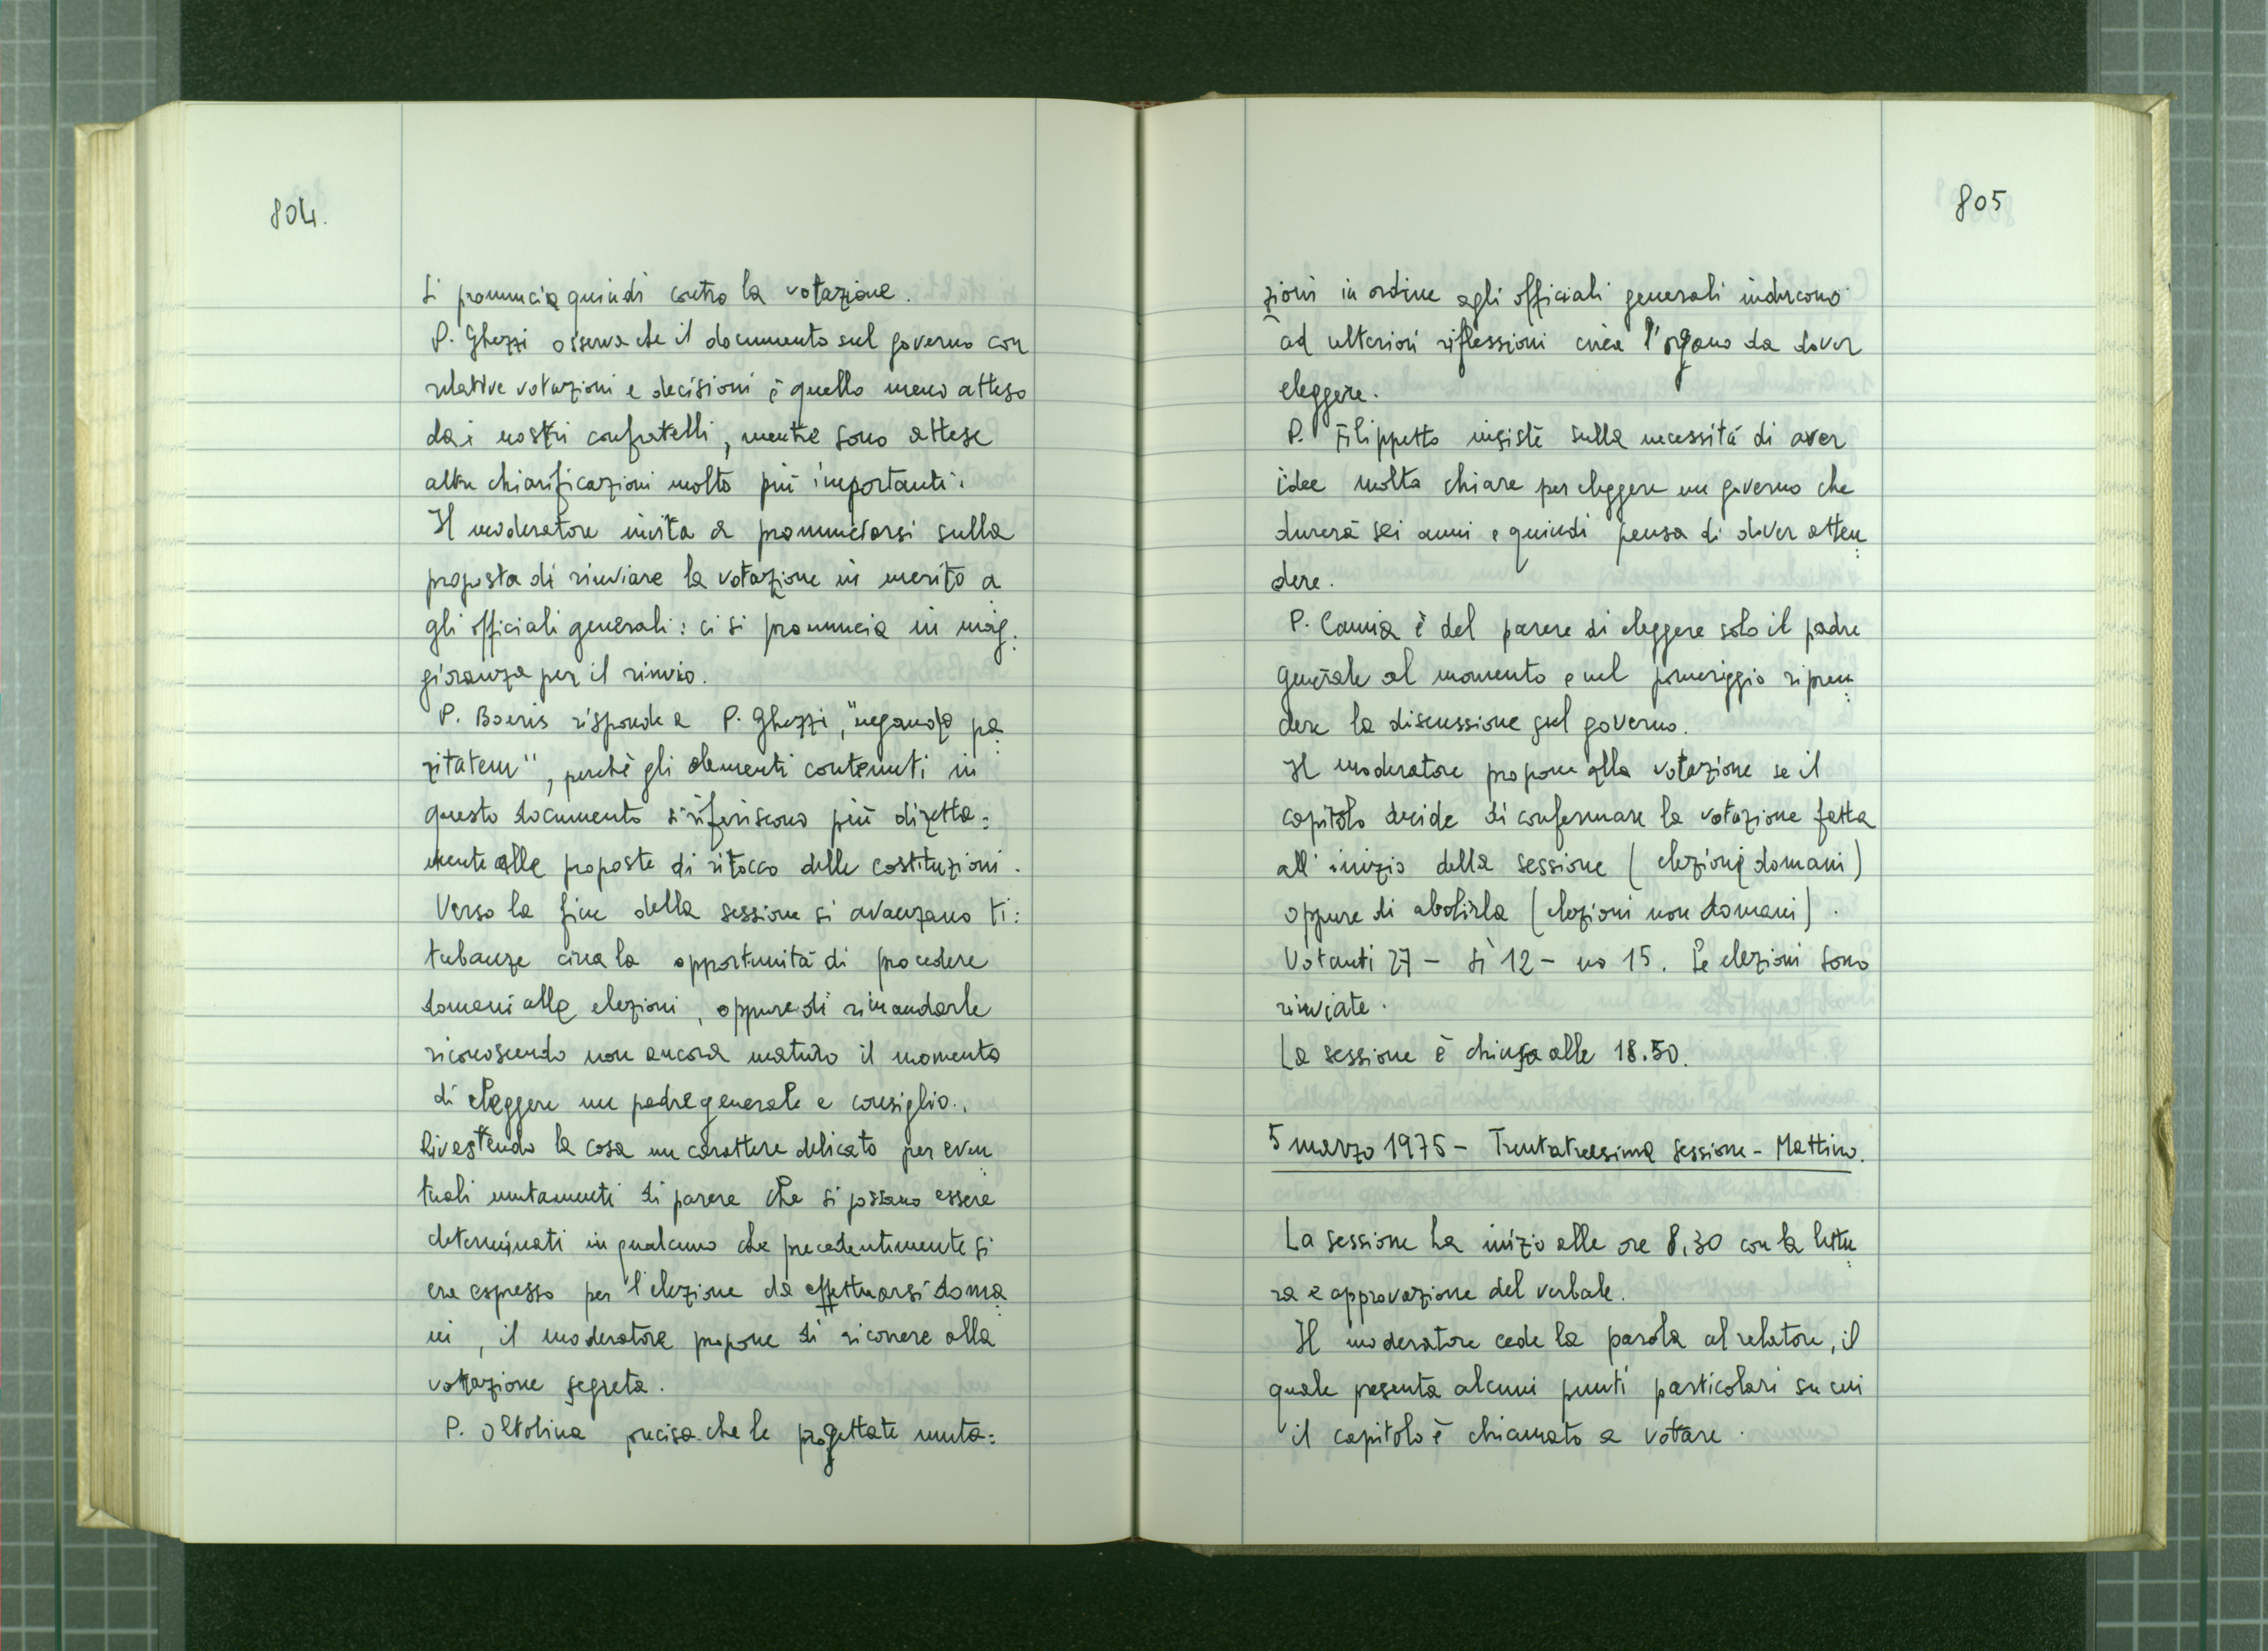 804.
Si pronuncia quindi contro la votazione.
P. Ghezzi osserva che il documento sul governo con
relative votazioni e decisioni è quello meno atteso
dai nostri confratelli, mentre sono attese
altre chiarificazioni molto più importanti.
Il moderatore invita a pronunciarsi sulla
proposta di rinviare la votazione in merito a
gli officiali generali: ci si pronuncia in mag:
gioranza per il rinvio.
P. Boeris risponde a P. Ghezzi, "negando pa:
ritatem", perchè gli elementi contenuti in
questo documento si riferiscono più diretta:
mente alle proposte di ritocco delle costituzioni.
Verso la fine della sessione si avanzano ti:
tubanze circa la opportunità di procedere
domani alle elezioni, oppure di rimandarle
riconoscendo non ancora maturo il momento
di eleggere un padre generale e consiglio.
Rivestendo la cosa un carattere delicato per even:
tuali mutamenti di parere che si possano essere
determinati in qualcuno che precedentemente si
era espresso per l'elezione da effettuarsi doma:
ni, il moderatore propone di ricorrere alla
votazione segreta.
P. Oltolina precisa che le progettate muta:
805
zioni in ordine agli officiali generali inducono
ad ulteriori riflessioni circa l'organo da dover
eleggere.
P. Filippetto insiste sulla necessità di aver
idee molto chiare per eleggere un governo che
durerà sei anni e quindi pensa di dover atten:
dere.
P. Camia è del parere di eleggere solo il padre
generale al momento e nel pomeriggio ripren:
dere la discussione sul governo.
Il moderatore propone alla votazione se il
capitolo decide di confermare la votazione fatta
all'inizio della sessione (elezioni domani)
oppure di abolirla (elezioni non domani).
Votanti 27 - sì 12 - no 15. Le elezioni sono
rinviate.
La sessione è chiusa alle 18.50.
5 marzo 1975 - Trentatreesima sessione - Mattino.
La sessione ha inizio alle ore 8,30 con la lettu:
ra e approvazione del verbale.
Il moderatore cede la parola al relatore, il
quale presenta alcuni punti particolari su cui
il capitolo è chiamato a votare.